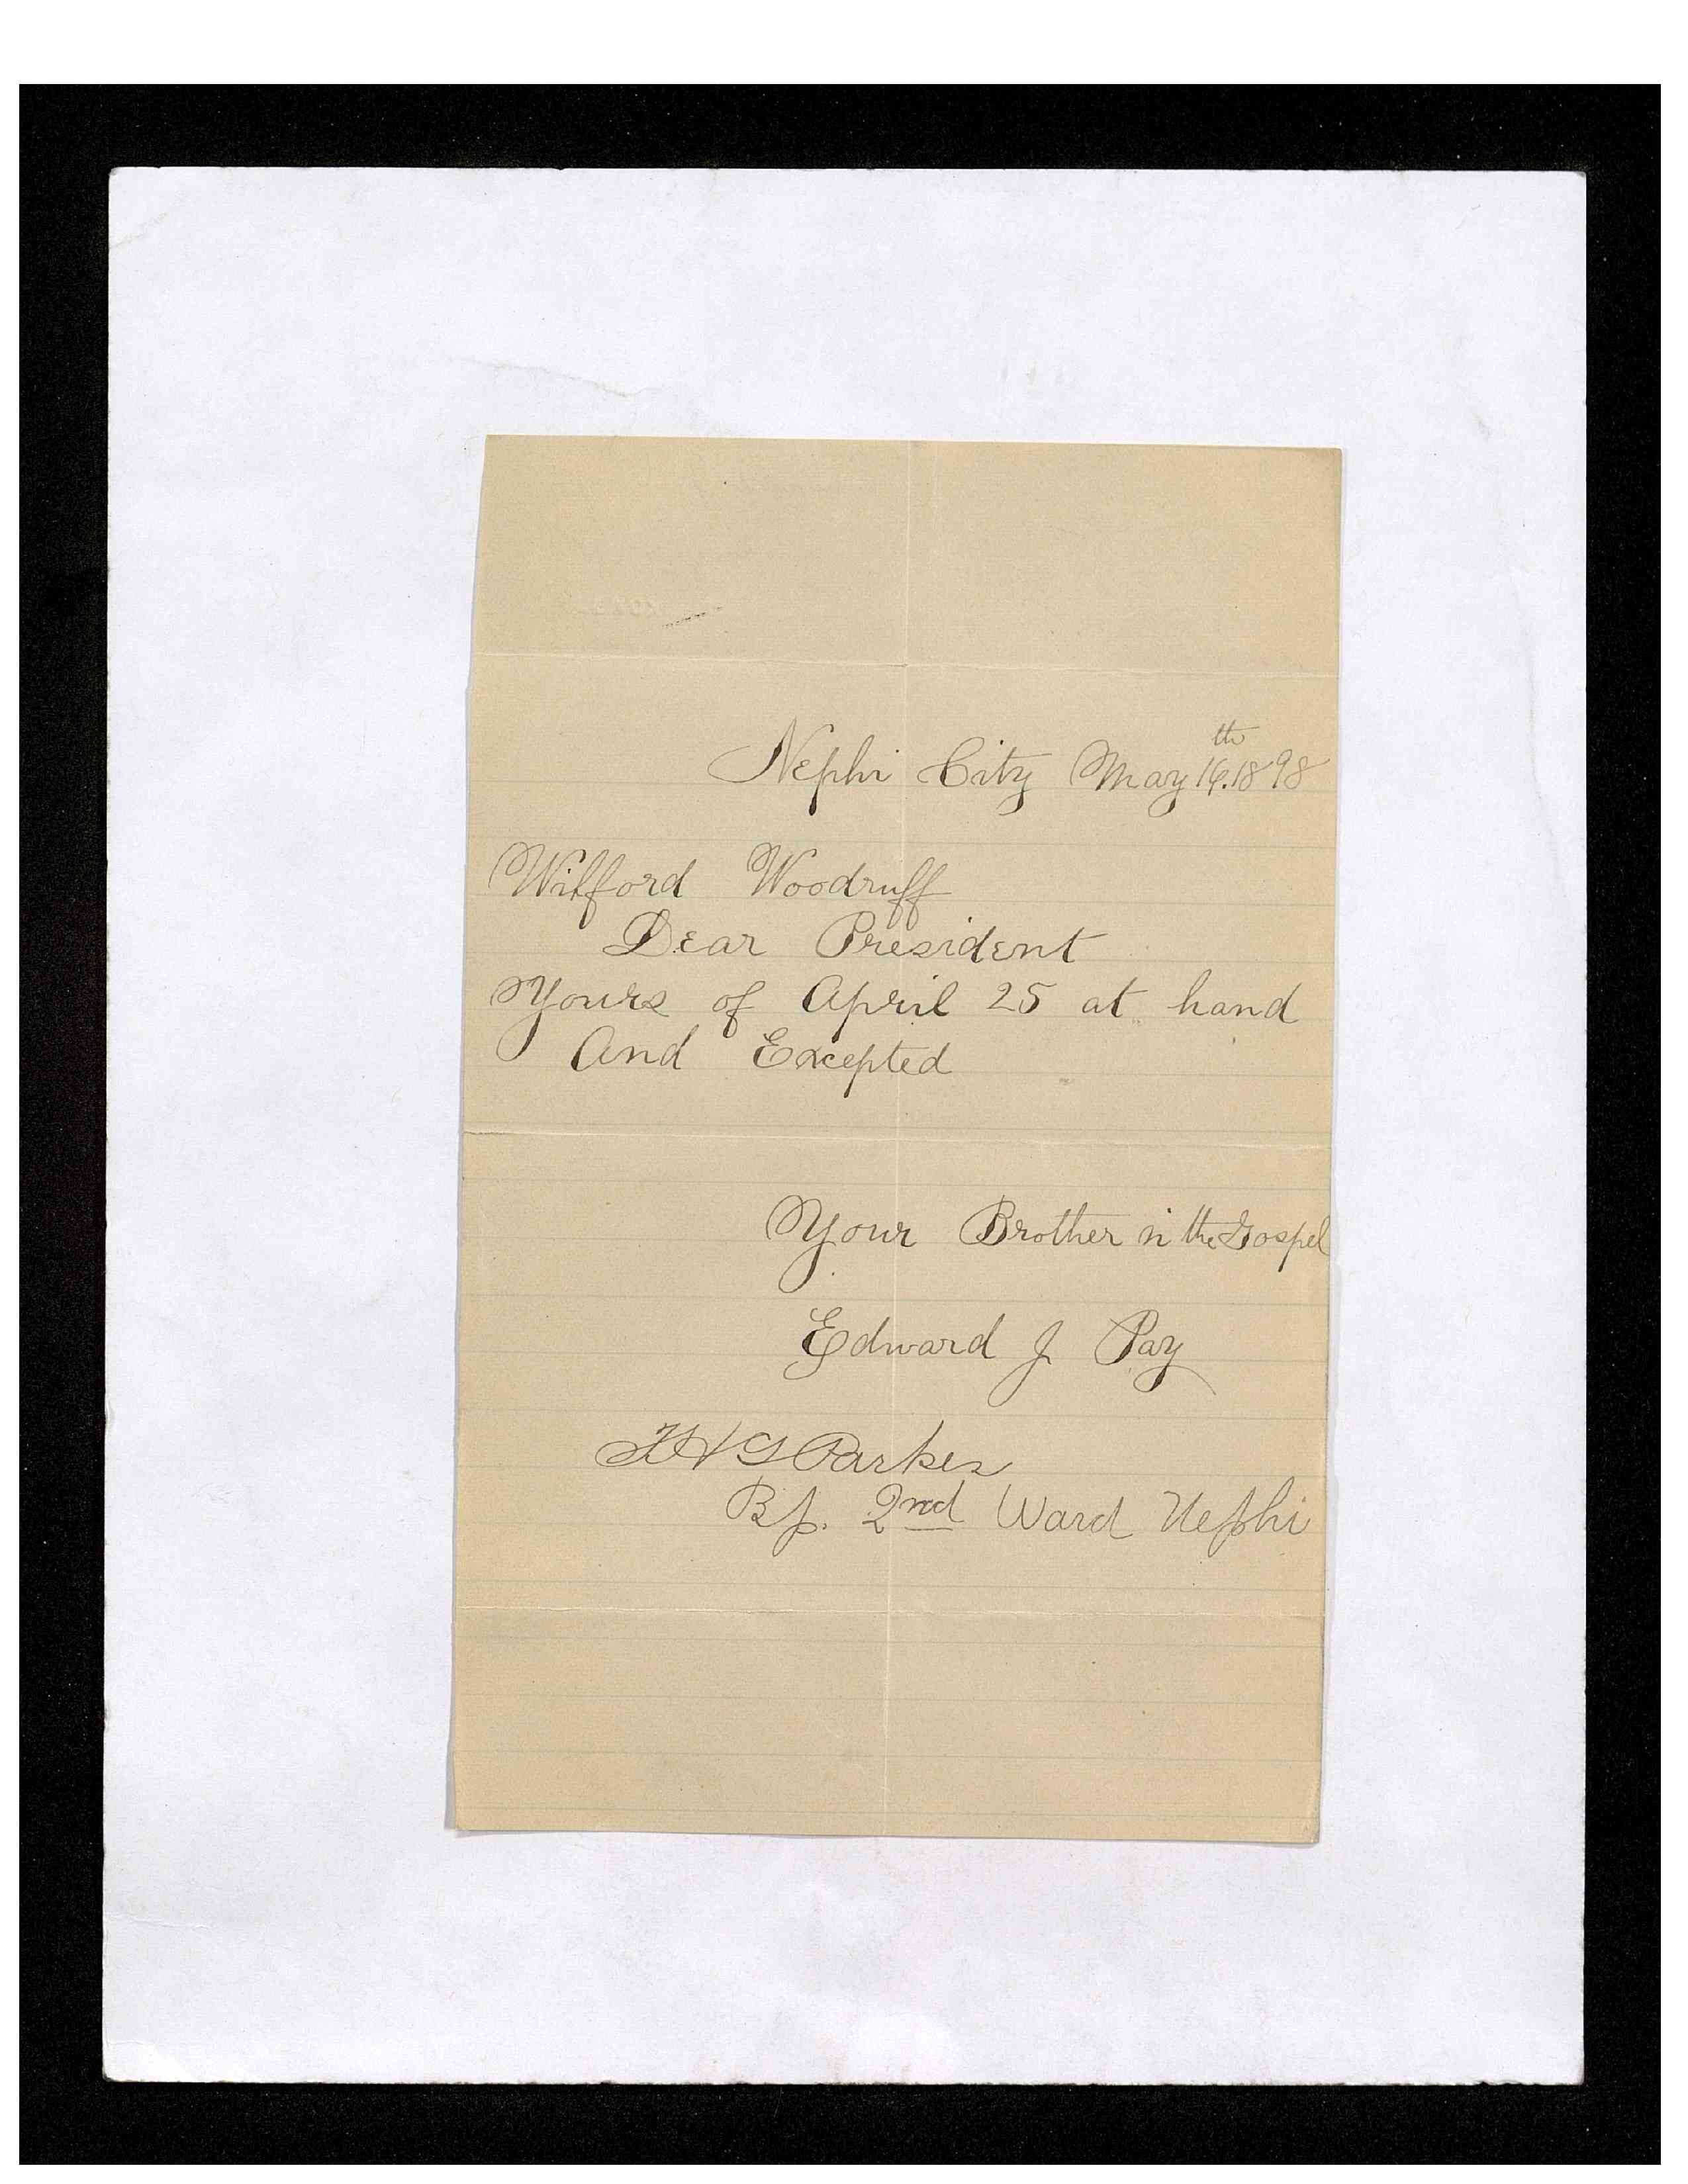 Nephi City May 16th. 1898
Wilford Woodruff
Dear President
Yours of April 25 at hand
And Excepted
Your Brother in the Gospel
Edward J Pay
Parker
Bp. 2nd Ward Nephi